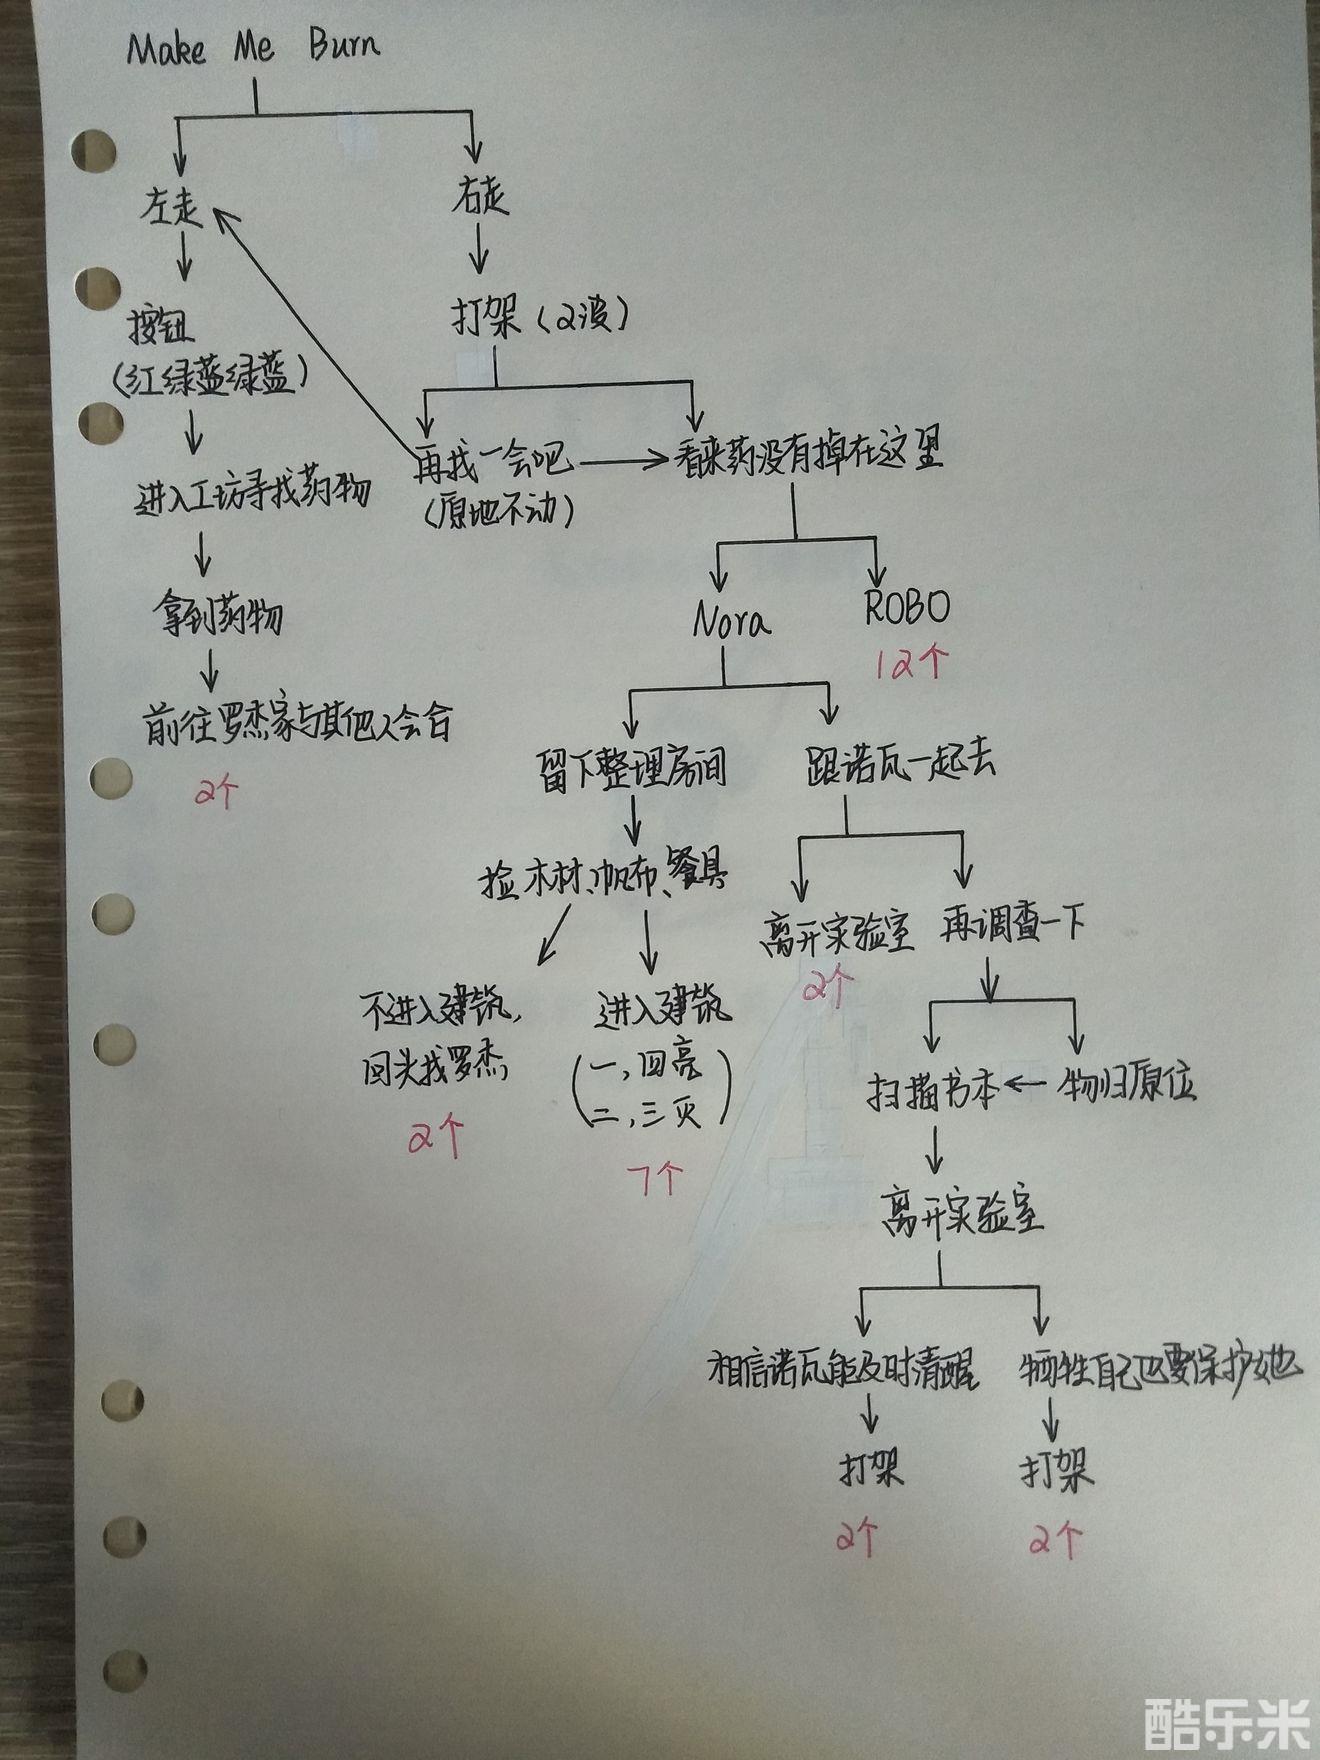 Make Me Burn
左走
右走
按钮
(红绿蓝绿蓝)
打架(2波)
进入工坊寻找药物
再找一会吧
(原地不动)
看来药没有掉在这里
拿到药物
Nora
ROBO
12个
前往罗杰家与其他人会合
2个
留下整理房间
跟诺瓦一起去
捡木材、帆布、餐具
离开实验室
2个
再调查一下
不进入建筑,
回头找罗杰,
2个
进入建筑
(一,四亮
二,三灭)
7个
扫描书本
物归原位
离开实验室
相信诺瓦能及时清醒
牺牲自己也要保护她
打架
打架
2个
2个
酷乐米